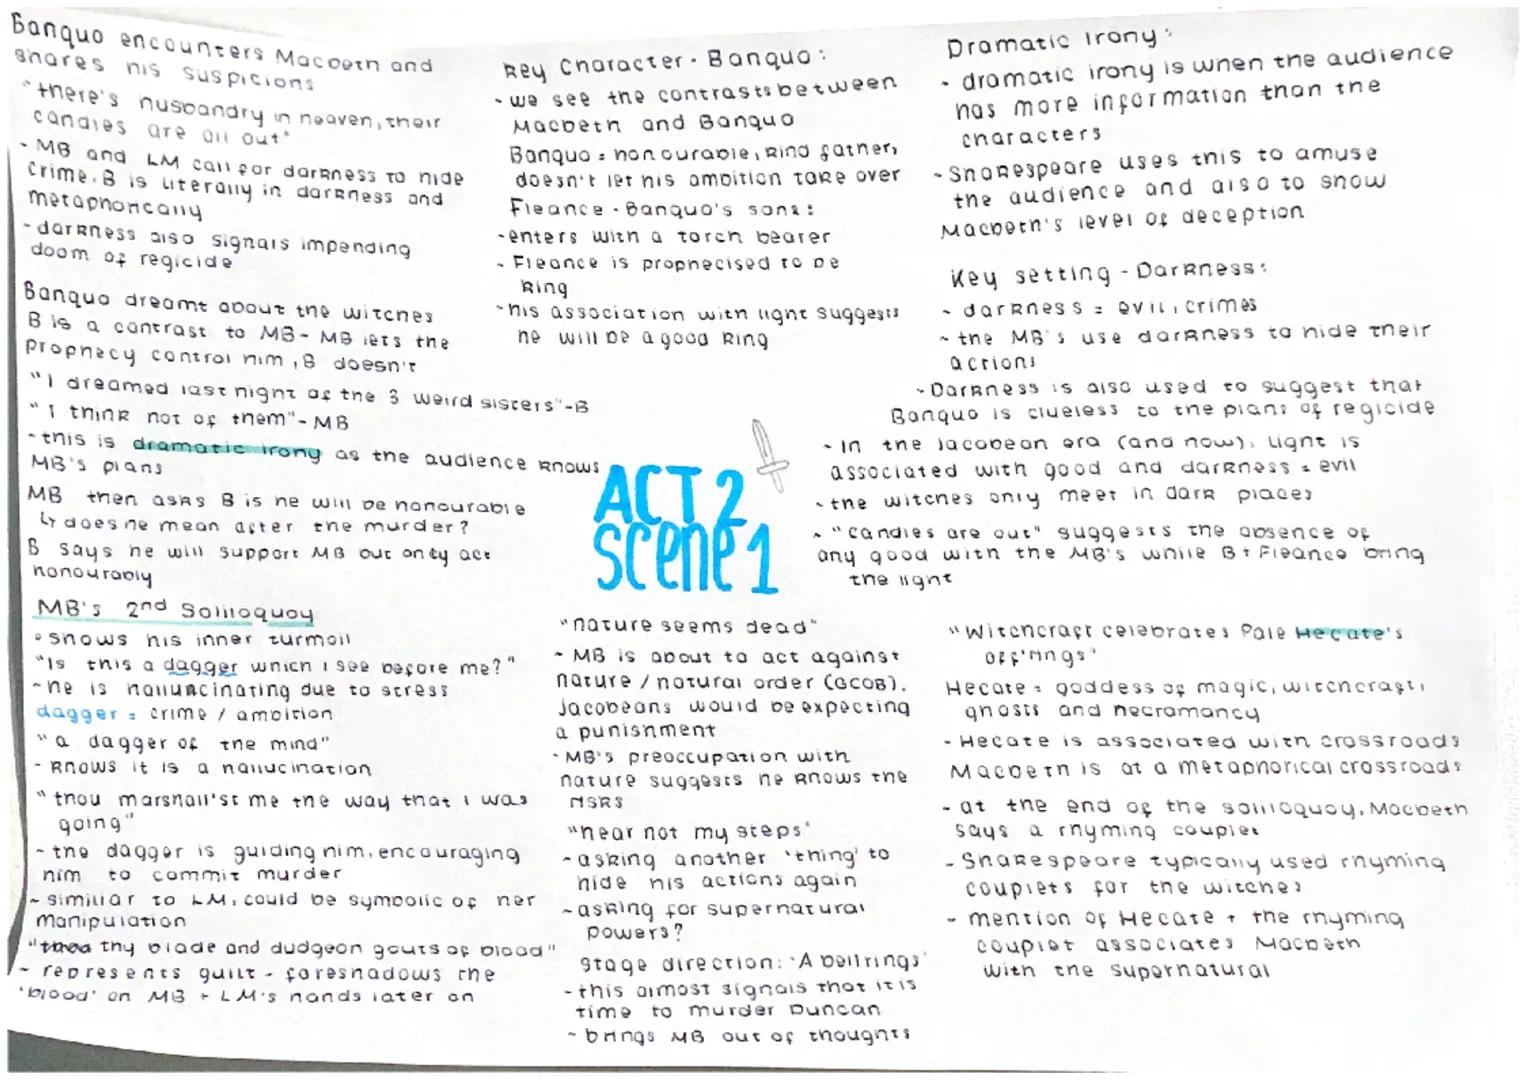 Banquo encounters Macbeth and
shares his suspicions
"there's husbandry in heaven, their
candles are all out"
- MB and LM call for darkness to hide
crime. B is literally in darkness and
metaphorically
- darkness also signals impending
doom of regicide
Banquo dreamt about the witches
B is a contrast to MB - MB lets the
prophecy control him, B doesn't
"I dreamed last night of the 3 weird sisters" - B
"I think not of them" - MB
- this is dramatic irony as the audience knows
MB's plans
MB then asks B is he will be honourable
↳ does he mean after the murder?
B says he will support MB but only act
honourably
MB's 2nd Soliloquoy
• shows his inner turmoil
"Is this a dagger which I see before me?"
- he is hallucinating due to stress
dagger = crime / ambition
"a dagger of the mind"
- knows it is a hallucination
"thou marshall'st me the way that I was
going"
- the dagger is guiding him, encouraging
him to commit murder
- similiar to LM, could be symbolic of her
manipulation
"thy blade and dudgeon gouts of blood"
- represents guilt - foreshadows the
'blood' on MB + LM's hands later on
Key Character - Banquo:
- we see the contrasts between
Macbeth and Banquo
Banquo = honourable, kind father,
doesn't let his ambition take over
Fleance - Banquo's sons:
- enters with a torch bearer
- Fleance is prophecised to be
king
- his association with light suggests
he will be a good king
ACT 2
scene 1
"nature seems dead"
- MB is about to act against
nature / natural order (GCOB).
Jacobeans would be expecting
a punishment
- MB's preoccupation with
nature suggests he knows the
risks
"hear not my steps"
- asking another 'thing' to
hide his actions again
- asking for supernatural
powers?
Stage direction: 'A bell rings'
- this almost signals that it is
time to murder Duncan
- brings MB out of thoughts
Dramatic Irony:
- dramatic irony is when the audience
has more information than the
characters
- Shakespeare uses this to amuse
the audience and also to show
Macbeth's level of deception
Key setting - Darkness:
- darkness = evil, crimes
- the MB's use darkness to hide their
actions
- Darkness is also used to suggest that
Banquo is clueless to the plans of regicide
- In the Jacobean era (and now), light is
associated with good and darkness = evil
- the witches only meet in dark places
- "candles are out" suggests the absence of
any good with the MB's while B + Fleance bring
the light
"Witchcraft celebrates Pale Hecate's
off'rings"
Hecate = goddess of magic, witchcraft,
ghosts and necromancy
- Hecate is associated with crossroads
Macbeth is at a metaphorical crossroads
- at the end of the soliloquoy, Macbeth
says a rhyming couplet
- Shakespeare typically used rhyming
couplets for the witches
- mention of Hecate + the rhyming
couplet associates Macbeth
with the supernatural